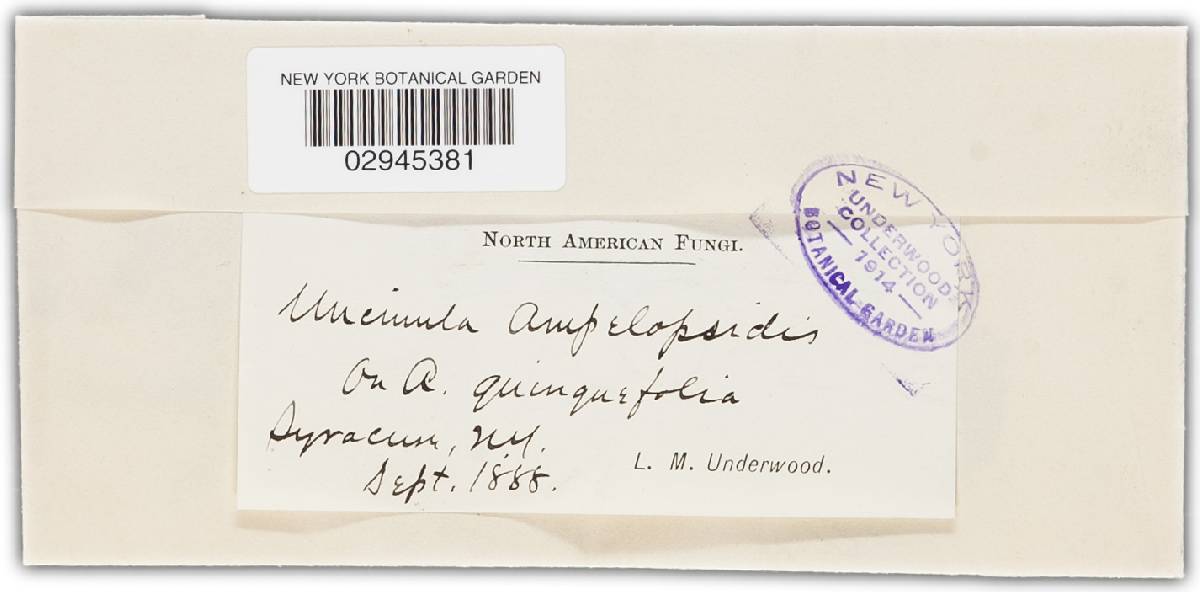 NEW YORK BOTANICAL GARDEN
02945381
NEW YORK
UNDERWOOD
COLLECTION
— 1914 —
BOTANICAL GARDEN
NORTH AMERICAN FUNGI.
Uncinula Ampelopsidis
On A. quinquefolia
Syracuse, NY.
Sept. 1888.
L. M. Underwood.